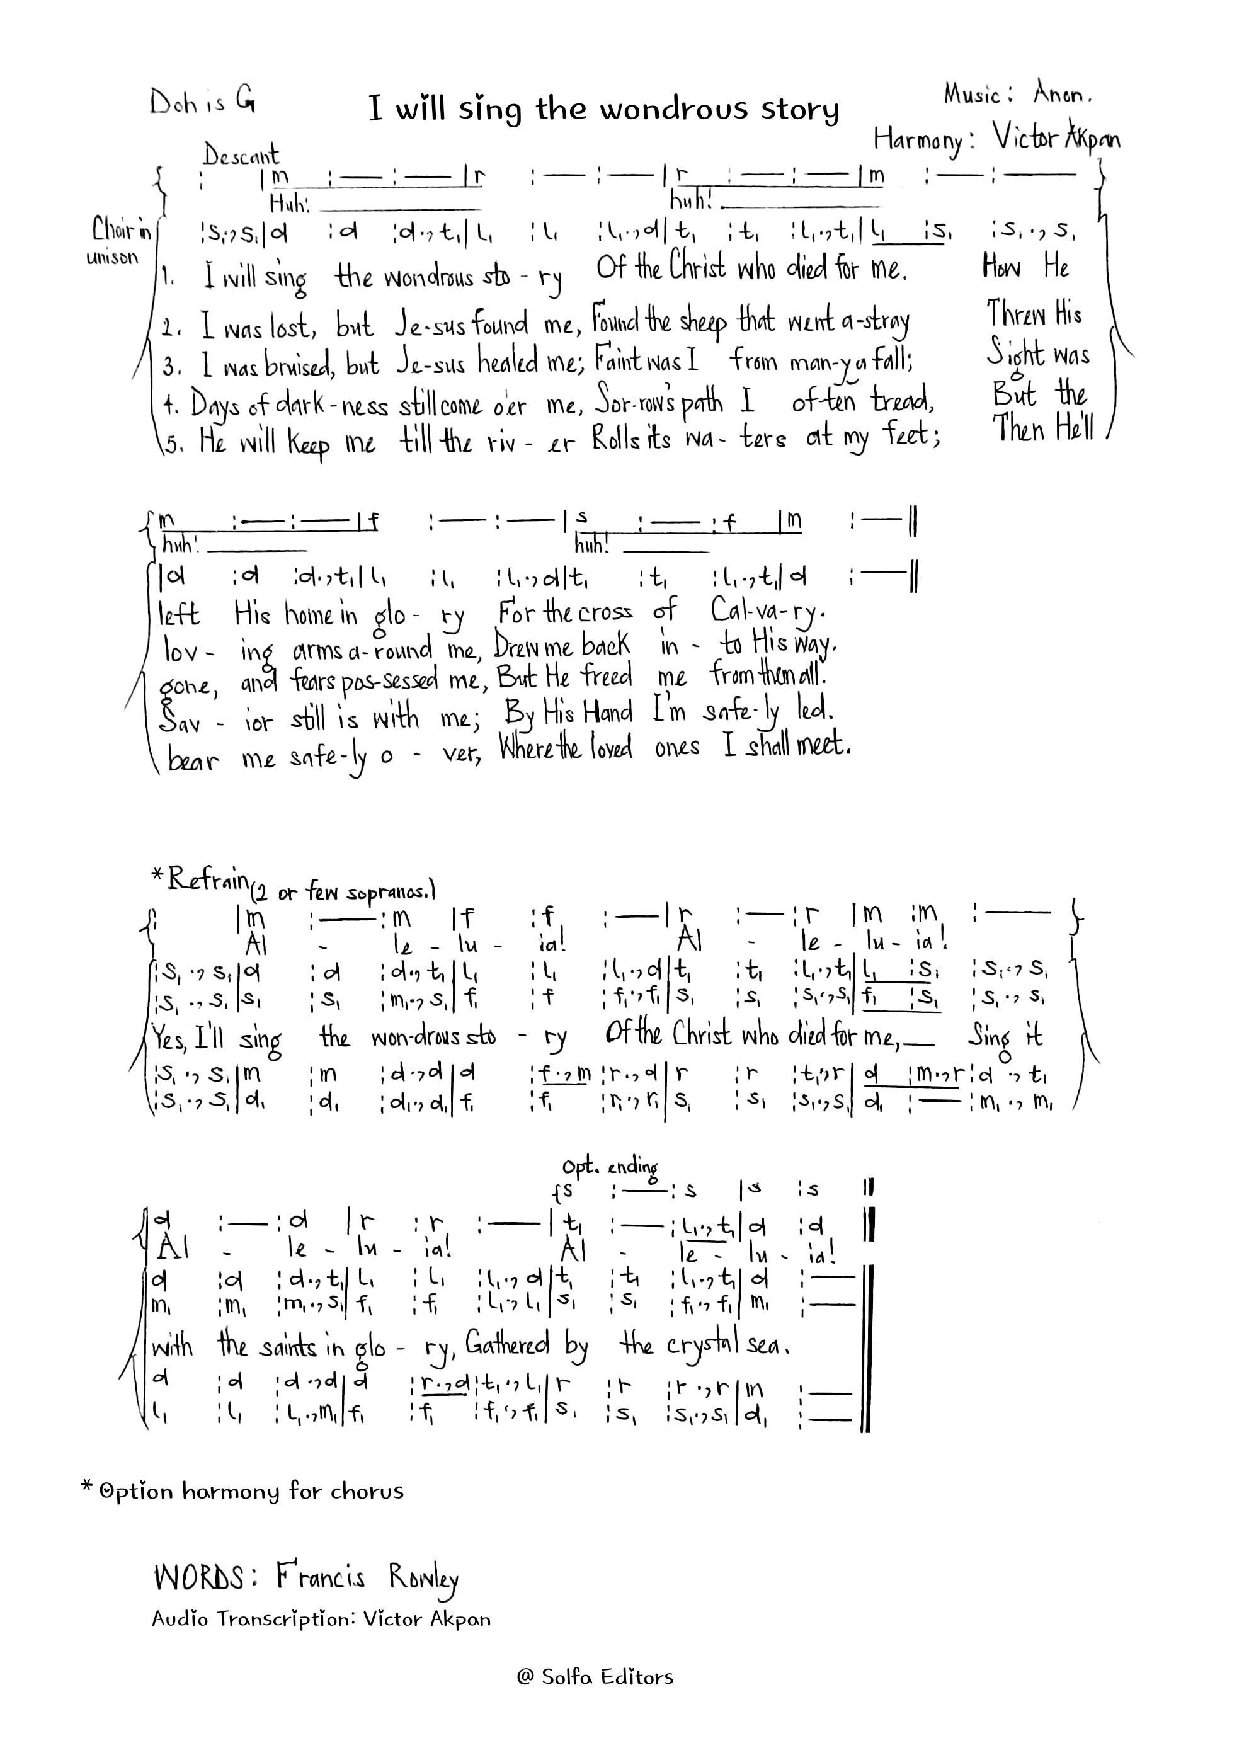 Doh is G
I will sing the wondrous story
Music: Anon.
Harmony: Victor Akpan
Descant
{ : |m :— :— |r :— :— |r :— :— |m :— :— }
Huh! huh!
Choir in unison
:s₁.,s₁|d :d :d.,t₁|l₁ :l₁ :l₁.,d|t₁ :t₁ :l₁.,t₁|l₁ :s₁ :s₁.,s₁
1. I will sing the wondrous sto - ry Of the Christ who died for me. How He
2. I was lost, but Je-sus found me, Found the sheep that went a-stray Threw His
3. I was bruised, but Je-sus healed me; Faint was I from man-y a fall; Sight was
4. Days of dark-ness still come o'er me, Sor-row's path I of-ten tread, But the
5. He will keep me till the riv - er Rolls its wa - ters at my feet; Then He'll
{m :— :— |f :— :— |s :— :f |m :— ||
huh! huh!
|d :d :d.,t₁|l₁ :l₁ :l₁.,d|t₁ :t₁ :l₁.,t₁|d :— ||
left His home in glo - ry For the cross of Cal-va-ry.
lov - ing arms a-round me, Drew me back in - to His way.
gone, and fears pos-sessed me, But He freed me from them all.
Sav - ior still is with me; By His Hand I'm safe-ly led.
bear me safe-ly o - ver, Where the loved ones I shall meet.
*Refrain (2 or few sopranos.)
{ : |m :— :m |f :f :— |r :— :r |m :m :— }
Al - le - lu - ia! Al - le - lu - ia!
:s₁.,s₁|d :d :d.,t₁|l₁ :l₁ :l₁.,d|t₁ :t₁ :l₁.,t₁|l₁ :s₁ :s₁.,s₁
:s₁.,s₁|s₁ :s₁ :m₁.,s₁|f₁ :f :f₁.,f₁|s₁ :s₁ :s₁.,s₁|f₁ :s₁ :s₁.,s₁
Yes, I'll sing the won-drous sto - ry Of the Christ who died for me,— Sing it
:s₁.,s₁|m :m :d.,d|d :f.,m :r.,d|r :r :t₁.,r|d :m.,r :d.,t₁
:s₁.,s₁|d₁ :d₁ :d₁.,d₁|f₁ :f₁ :r₁.,r₁|s₁ :s₁ :s₁.,s₁|d₁ :— :m₁.,m₁
Opt. ending
{s :— :s |s :s ||
{d :— :d |r :r :— |t₁ :— :l₁.,t₁|d :d ||
Al - le - lu - ia! Al - le - lu - ia!
d :d :d.,t₁|l₁ :l₁ :l₁.,d|t₁ :t₁ :l₁.,t₁|d :—
m₁ :m₁ :m₁.,s₁|f₁ :f₁ :l₁.,l₁|s₁ :s₁ :f₁.,f₁|m₁ :—
with the saints in glo - ry, Gathered by the crystal sea.
d :d :d.,d|d :r.,d :t₁.,l₁|r :r :r.,r|m :—
l₁ :l₁ :l₁.,m₁|f₁ :f₁ :f₁.,f₁|s₁ :s₁ :s₁.,s₁|d₁ :—
* Option harmony for chorus
WORDS: Francis Rowley
Audio Transcription: Victor Akpan
@ Solfa Editors